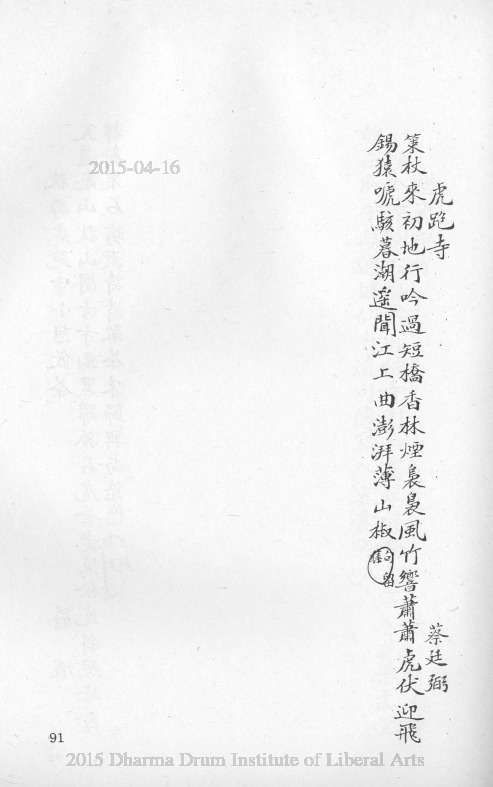 虎跑寺
蔡廷弼
策杖來初地行吟過短橋香林煙裊裊風竹響蕭蕭虎伏迎飛
錫猿唬駭暮潮遥聞江上曲澎湃薄山椒
2015-04-16
91
2015 Dharma Drum Institute of Liberal Arts